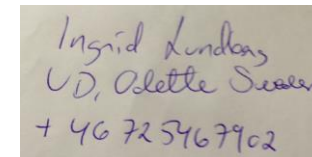 Ingrid Lundberg
VD, Odette Sweden
+46 725467902